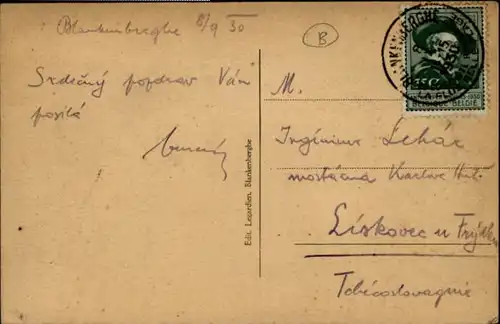 Blankenberghe 8/9 30
B
Srdečný pozdrav Vám
posílá
M.
Ingénieur Lehár
mostárna Karlova Huť
Lískovec u Frýdku
Tchécoslovaquie
Edit. Legardien, Blankenberghe
BLANKENBERGHE
BELGIQUE BELGIË